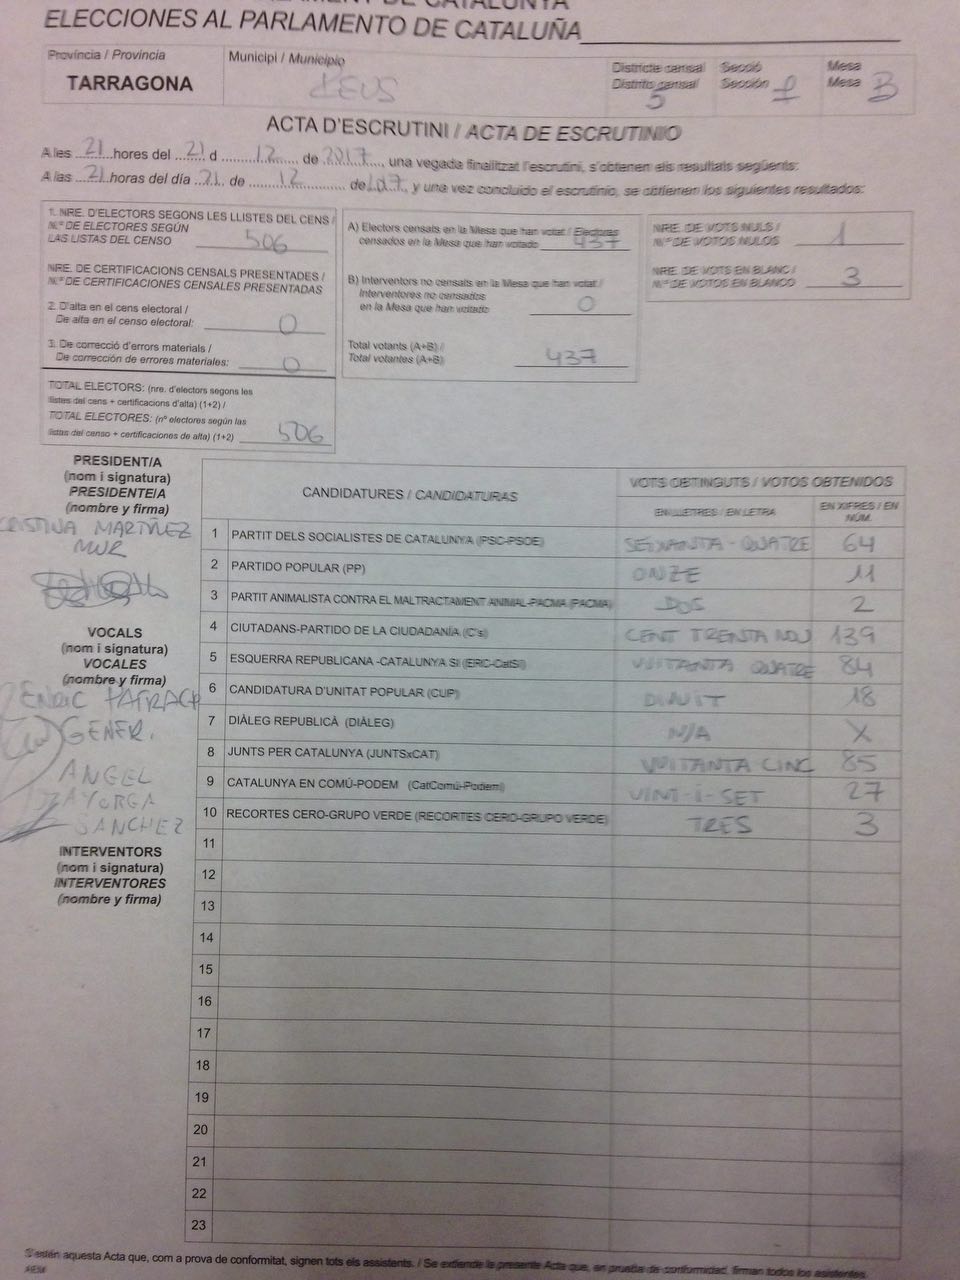 ELECCIONES AL PARLAMENTO DE CATALUÑA
Província / Provincia
TARRAGONA
Municipi / Municipio
REUS
Districte censal
Distrito censal
5
Secció
Sección
1
Mesa
Mesa
B
ACTA D'ESCRUTINI / ACTA DE ESCRUTINIO
A les 21 hores del 21 d 12 de 2017, una vegada finalitzat l'escrutini, s'obtenen els resultats següents:
A las 21 horas del día 21 de 12 de 2017, y una vez concluido el escrutinio, se obtienen los siguientes resultados:
1. NRE. D'ELECTORS SEGONS LES LLISTES DEL CENS /
N.º DE ELECTORES SEGÚN
LAS LISTAS DEL CENSO 506
NRE. DE CERTIFICACIONS CENSALS PRESENTADES /
N.º DE CERTIFICACIONES CENSALES PRESENTADAS
2. D'alta en el cens electoral /
De alta en el censo electoral: 0
3. De correcció d'errors materials /
De corrección de errores materiales: 0
TOTAL ELECTORS: (nre. d'electors segons les
llistes del cens + certificacions d'alta) (1+2) /
TOTAL ELECTORES: (nº electores según las
listas del censo + certificaciones de alta) (1+2) 506
A) Electors censats en la Mesa que han votat / Electores
censados en la Mesa que han votado 437
B) Interventors no censats en la Mesa que han votat /
Interventores no censados
en la Mesa que han votado 0
Total votants (A+B) /
Total votantes (A+B) 437
NRE. DE VOTS NULS /
N.º DE VOTOS NULOS 1
NRE. DE VOTS EN BLANC /
N.º DE VOTOS EN BLANCO 3
PRESIDENT/A
(nom i signatura)
PRESIDENTE/A
(nombre y firma)
CRISTINA MARTÍNEZ
MUR
VOCALS
(nom i signatura)
VOCALES
(nombre y firma)
ENRIC
GENER.
ANGEL
SANCHEZ
INTERVENTORS
(nom i signatura)
INTERVENTORES
(nombre y firma)
CANDIDATURES / CANDIDATURAS
VOTS OBTINGUTS / VOTOS OBTENIDOS
EN LLETRES / EN LETRA
EN XIFRES / EN
NÚM.
1 PARTIT DELS SOCIALISTES DE CATALUNYA (PSC-PSOE) SEIXANTA-QUATRE 64
2 PARTIDO POPULAR (PP) ONZE 11
3 PARTIT ANIMALISTA CONTRA EL MALTRACTAMENT ANIMAL-PACMA (PACMA) DOS 2
4 CIUTADANS-PARTIDO DE LA CIUDADANÍA (C's) CENT TRENTA NOU 139
5 ESQUERRA REPUBLICANA -CATALUNYA SÍ (ERC-CatSí) VUITANTA QUATRE 84
6 CANDIDATURA D'UNITAT POPULAR (CUP) DIVUIT 18
7 DIÀLEG REPUBLICÀ (DIÀLEG) N/A X
8 JUNTS PER CATALUNYA (JUNTSxCAT) VUITANTA CINC 85
9 CATALUNYA EN COMÚ-PODEM (CatComú-Podem) VINT-I-SET 27
10 RECORTES CERO-GRUPO VERDE (RECORTES CERO-GRUPO VERDE) TRES 3
11
12
13
14
15
16
17
18
19
20
21
22
23
S'estén aquesta Acta que, com a prova de conformitat, signen tots els assistents. / Se extiende la presente Acta que, en prueba de conformidad, firman todos los asistentes.